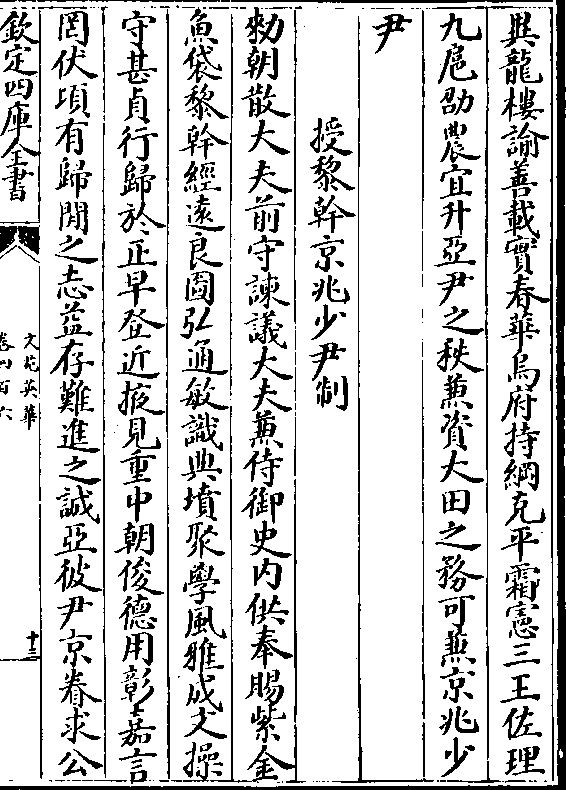 與龍樓諭善載實春華烏府持綱克平霜憲三王佐理
九扈劭農宜升亞尹之秩兼資大田之務可兼京兆少
尹
授黎幹京兆少尹制
勑朝散大夫前守諫議大夫兼侍御史内供奉賜紫金
魚袋黎幹經遠良圖弘通敏識典墳聚學風雅成文操
守甚貞行歸於正早登近掖見重中朝俊德用彰嘉言
罔伏頃有歸閒之志益存難進之誠亞彼尹京眷求公
欽定四庫全書
文苑英華
卷四百六
十三